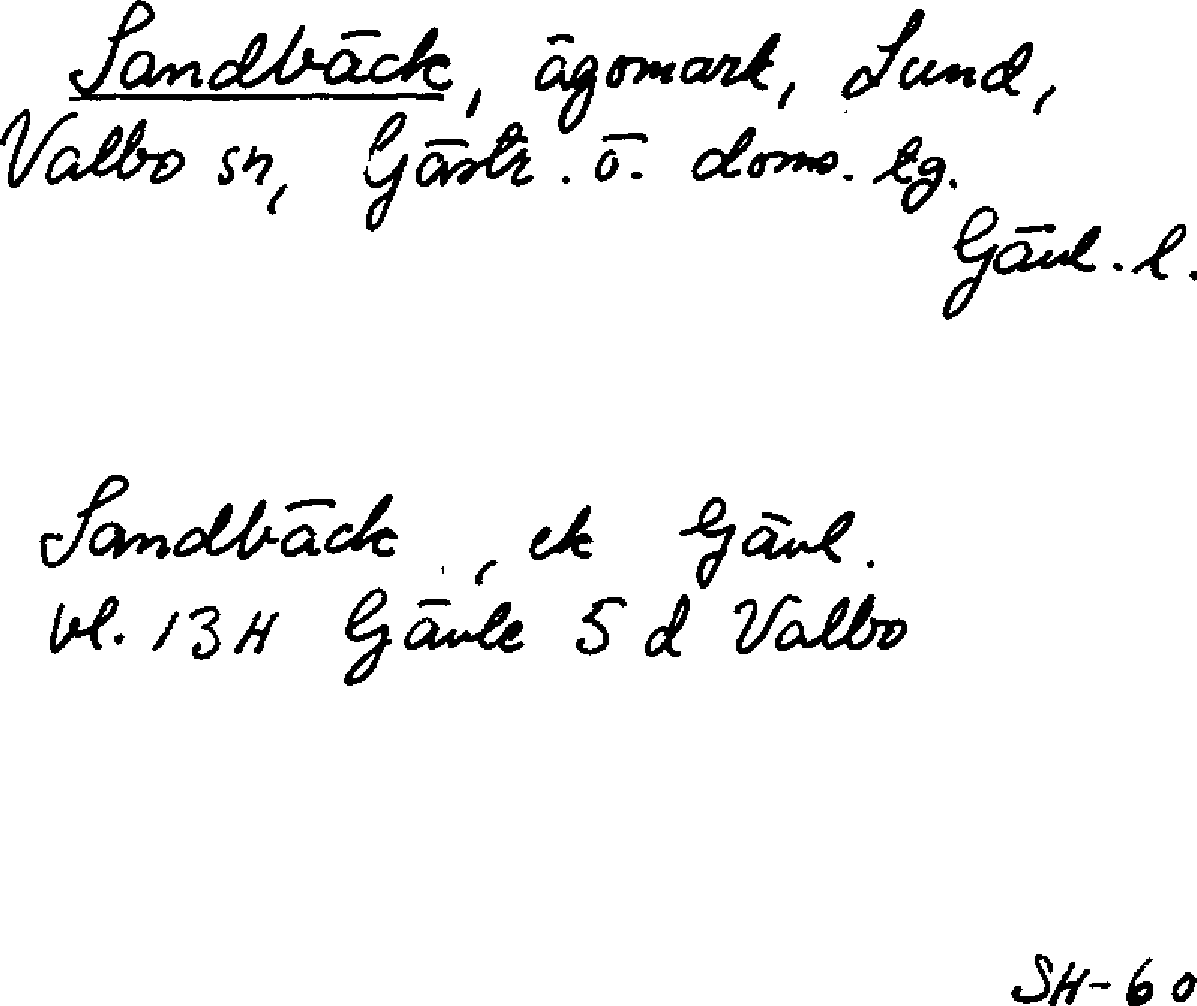 Sandbäck, ägomark, Lund,
Valbo sn, Gästr. ö. doms. tg.
Gävl. l.
Sandbäck, ek Gävl.
bl. 13H Gävle 5 d Valbo
SH-60